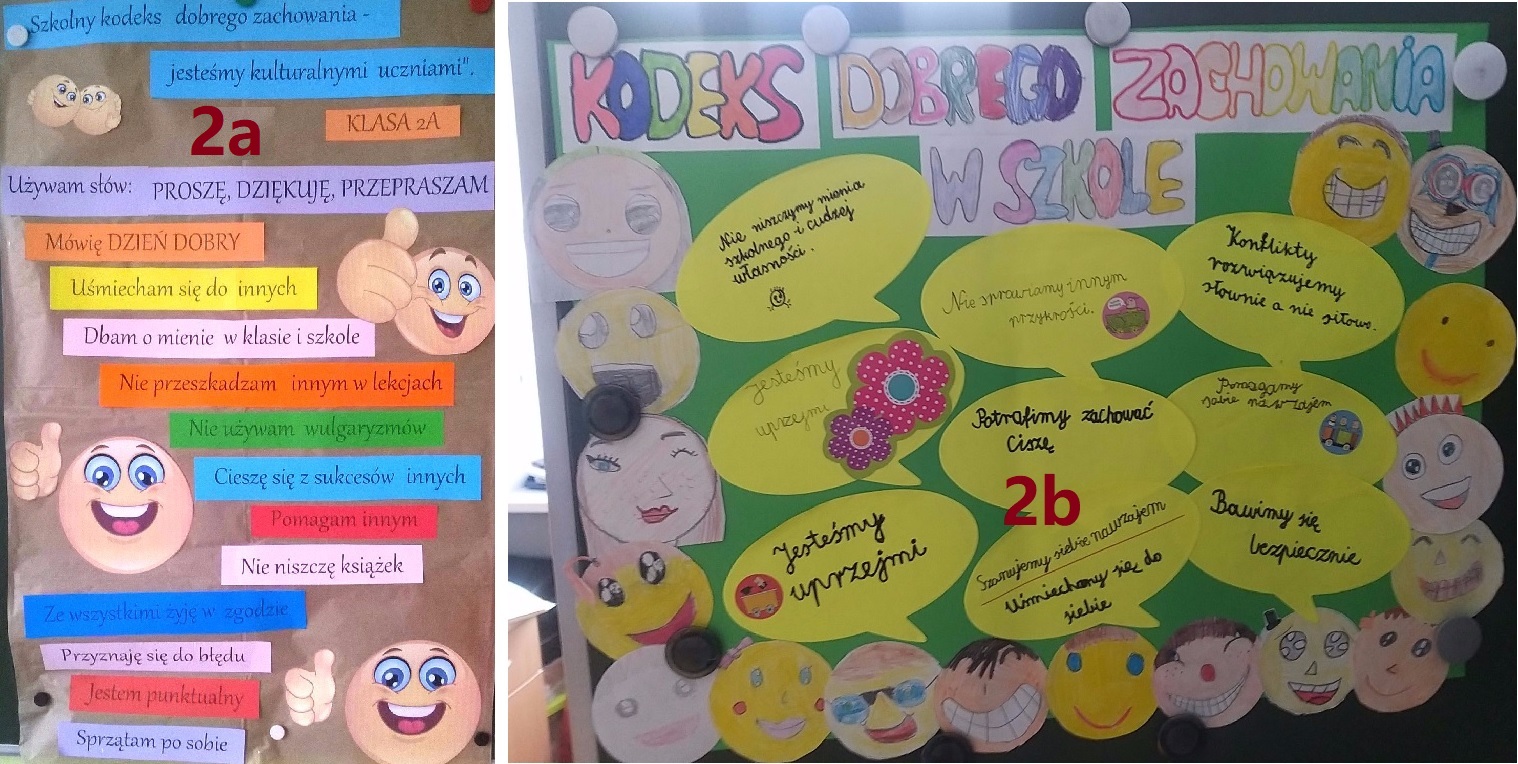 Szkolny kodeks dobrego zachowania -
jesteśmy kulturalnymi uczniami".
2a
KLASA 2A
Używam słów: PROSZĘ, DZIĘKUJĘ, PRZEPRASZAM
Mówię DZIEŃ DOBRY
Uśmiecham się do innych
Dbam o mienie w klasie i szkole
Nie przeszkadzam innym w lekcjach
Nie używam wulgaryzmów
Cieszę się z sukcesów innych
Pomagam innym
Nie niszczę książek
Ze wszystkimi żyję w zgodzie
Przyznaję się do błędu
Jestem punktualny
Sprzątam po sobie
KODEKS DOBREGO ZACHOWANIA
W SZKOLE
Nie niszczymy mienia
szkolnego i cudzej
własności.
Nie sprawiamy innym
przykrości.
Konflikty
rozwiązujemy
słownie a nie siłowo.
Jesteśmy
uprzejmi
Potrafimy zachować
ciszę
Pomagamy
sobie nawzajem
2b
Jesteśmy
uprzejmi
Szanujemy siebie nawzajem
Uśmiechamy się do
siebie
Bawimy się
bezpiecznie